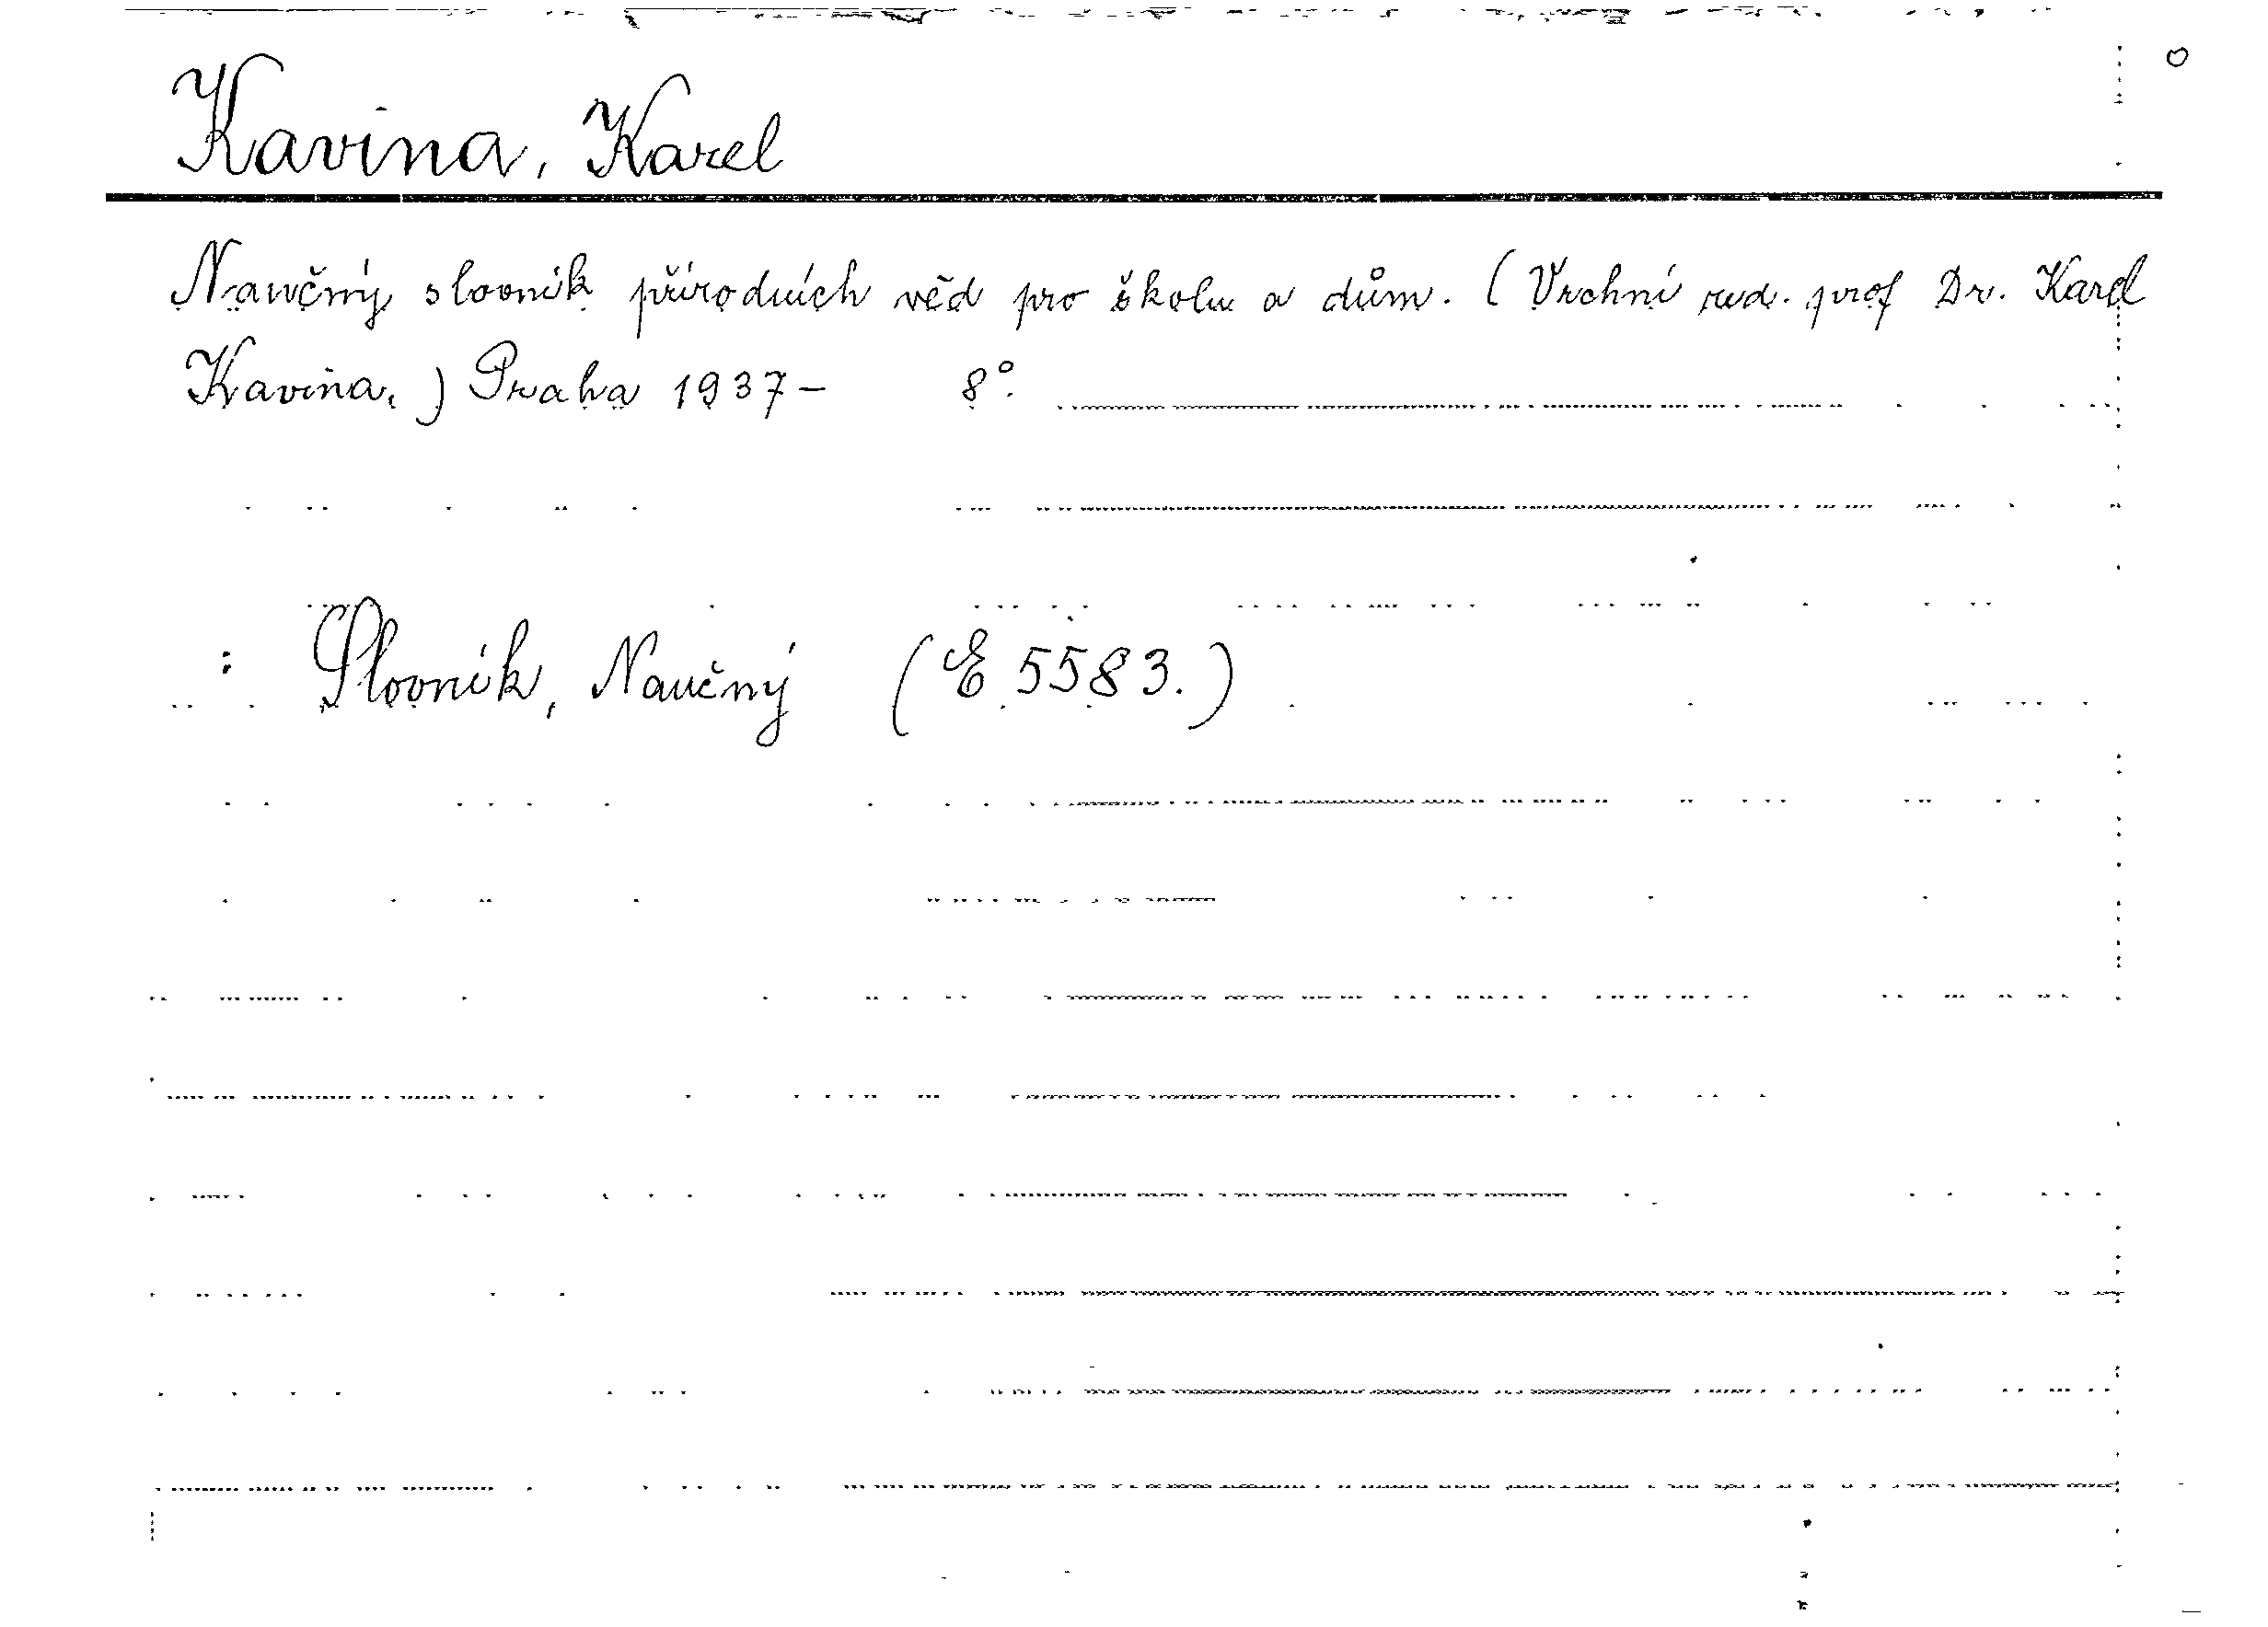 Kavina, Karel
Naučný slovník přírodních věd pro školu a dům. (Vrchní red. prof Dr. Karel
Kavina.) Praha 1937- 8°.
: Slovník, Naučný (E 5583.)